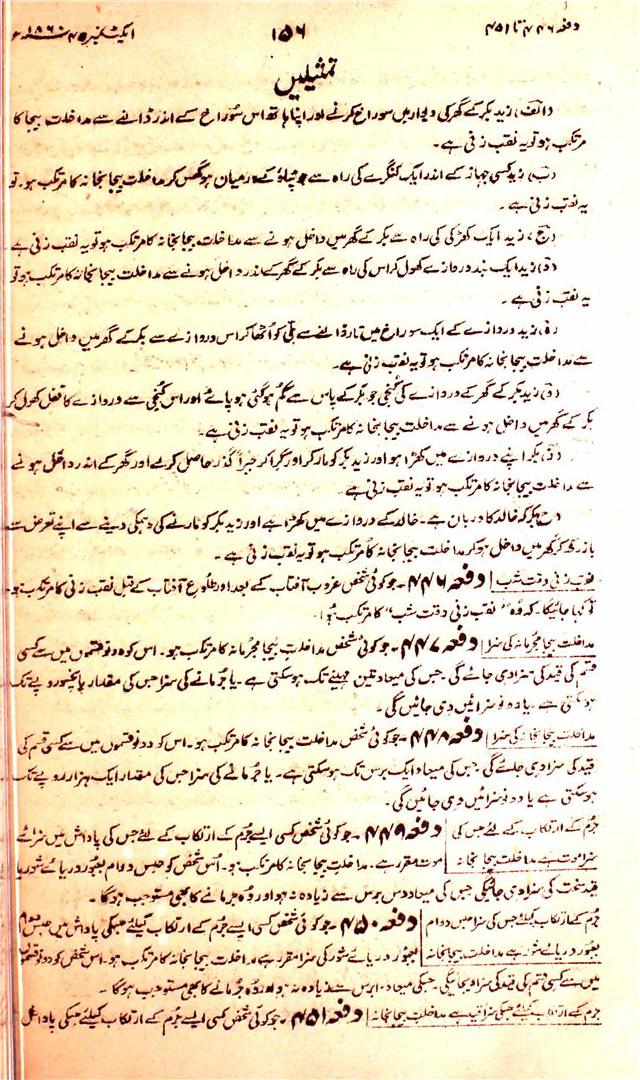 دفعہ ۴۴۶ تا ۴۵۱ ۱۵۶ ایکٹ نمبر ۴۵ ۱۸۶۰ء
تمثیلیں
(الف) زید بکر کے گھر کی دیوار میں سوراخ کرنے اور اپنا ہاتھ اس سوراخ کے اندر ڈالنے سے مداخلت بیجا کا
مرتکب ہو تو یہ نقب زنی ہے۔
(ب) زید کسی جہاز کے اندر ایک کنگرے کی راہ سے جو چہاؤ کے درمیان ہو گھس کر مداخلت بیجا بخانہ کا مرتکب ہو۔ تو
یہ نقب زنی ہے۔
(ج) زید ایک کھڑکی کی راہ سے بکر کے گھر میں داخل ہونے سے مداخلت بیجا بخانہ کا مرتکب ہو تو یہ نقب زنی ہے
(د) زید ایک بند دروازے کھول کر اس کی راہ سے بکر کے گھر کے اندر داخل ہونے سے مداخلت بیجا بخانہ کا مرتکب ہو تو
یہ نقب زنی ہے۔
(ہ) زید دروازے کے ایک سوراخ میں تار ڈالنے سے بلی کو اٹھا کر اس دروازے سے بکر کے گھر میں داخل ہونے
سے مداخلت بیجا بخانہ کا مرتکب ہو تو یہ نقب زنی ہے۔
(و) زید بکر کے گھر کے دروازے کی کنجی جو بکر کے پاس سے گم ہو گئی ہو پائے اور اس کنجی سے دروازے کا قفل کھول کر
بکر کے گھر میں داخل ہونے سے مداخلت بیجا بخانہ کا مرتکب ہو تو یہ نقب زنی ہے۔
(ز) بکر اپنے دروازے میں کھڑا ہو اور زید بکر کو مار کر اور گرا کر جبراً گذر حاصل کرے اور گھر کے اندر داخل ہونے
سے مداخلت بیجا بخانہ کا مرتکب ہو تو یہ نقب زنی ہے
(ح) بکر کہ خالد کا دربان ہے۔ خالد کے دروازے میں کھڑا ہے اور زید بکر کو مارنے کی دہمکی دینے سے اپنے تعرض سے
باز رکھ کر گھر میں داخل ہو کر مداخلت بیجا بخانہ کا مرتکب ہو تو یہ نقب زنی ہے۔
نقب زنی وقت شب دفعہ ۴۴۶۔ جو کوئی شخص غروب آفتاب کے بعد اور طلوع آفتاب کے قبل نقب زنی کا مرتکب ہو۔
تو کہا جائیگا۔ کہ وہ "نقب زنی وقت شب" کا مرتکب ہوا۔
مداخلت بیجا مجرمانہ کی سزا دفعہ ۴۴۷۔ جو کوئی شخص مداخلت بیجا مجرمانہ کا مرتکب ہو۔ اس کو دونو قسموں میں سے کسی
قسم کی قید کی سزا دی جائے گی۔ جس کی میعاد تین مہینے تک ہو سکتی ہے۔ یا جرمانے کی سزا جس کی مقدار پانچسو روپے تک
ہو سکتی ہے۔ یا دونو سزائیں دی جائیں گی۔
مداخلت بیجا بخانہ کی سزا دفعہ ۴۴۸۔ جو کوئی شخص مداخلت بیجا بخانہ کا مرتکب ہو۔ اس کو دونو قسموں میں سے کسی قسم کی
قید کی سزا دی جائے گی جس کی میعاد ایک برس تک ہو سکتی ہے۔ یا جرمانے کی سزا جس کی مقدار ایک ہزار روپے تک
ہو سکتی ہے یا دونو سزائیں دی جائیں گی۔
جرم کے ارتکاب کے لئے جس کی دفعہ ۴۴۹۔ جو کوئی شخص کسی ایسے جرم کے ارتکاب کے لئے جس کی پاداش میں سزائے
سزا موت ہے مداخلت بیجا بخانہ موت مقرر ہے۔ مداخلت بیجا بخانہ کا مرتکب ہو۔ اس شخص کو حبس دوام بعبور دریائے شور یا
قید سخت کی سزا دی جائیگی جس کی میعاد دس برس سے زیادہ نہ ہو اور وہ جرمانے کا بھی مستوجب ہو گا۔
جرم کے ارتکاب کیلئے جس کی سزا حبس دوام دفعہ ۴۵۰۔ جو کوئی شخص کسی ایسے جرم کے ارتکاب کیلئے جسکی پاداش میں حبس دوام
بعبور دریائے شور ہے مداخلت بیجا بخانہ بعبور دریائے شور کی سزا مقرر ہے مداخلت بیجا بخانہ کا مرتکب ہو۔ اس شخص کو دونو قسموں
میں سے کسی قسم کی قید کی سزا دیجائیگی۔ جسکی میعاد ۱۰ برس سے زیادہ نہ ہو اور وہ جرمانے کا بھی مستوجب ہو گا۔
جرم کے ارتکاب کیلئے جسکی سزا قید ہے مداخلت بیجا بخانہ دفعہ ۴۵۱۔ جو کوئی شخص کسی ایسے جرم کے ارتکاب کیلئے جسکی پاداش